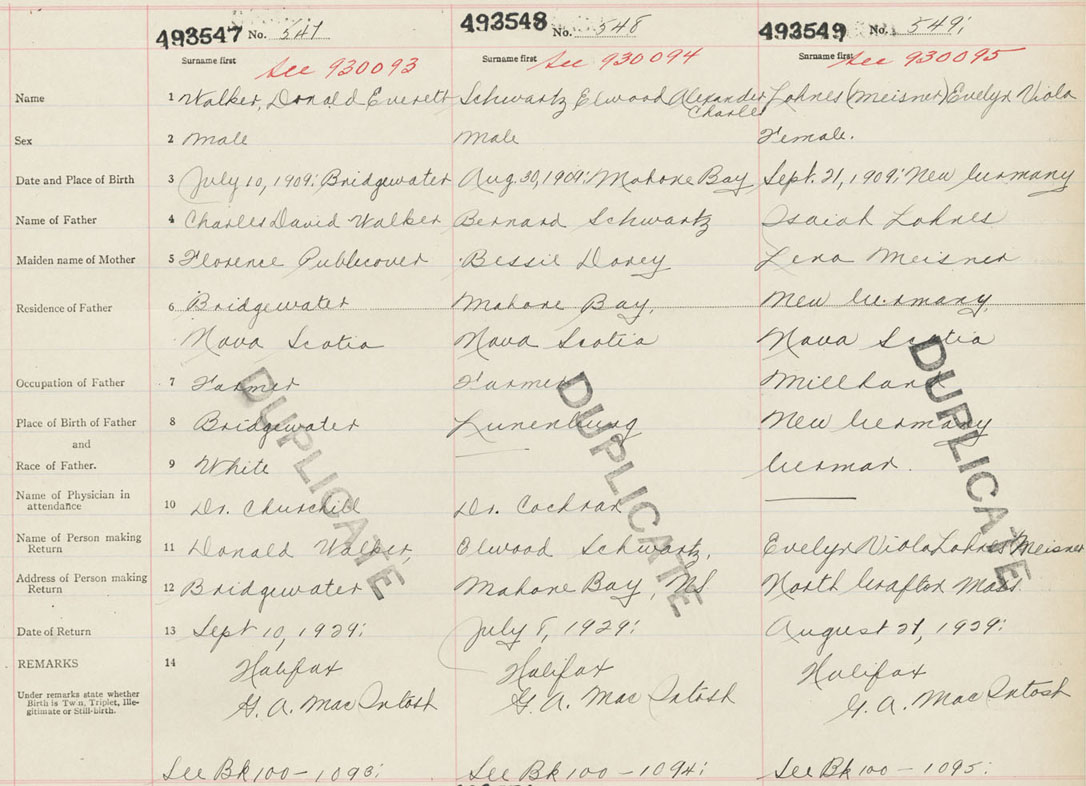 493547 No. 547
493548 No. 548
493549 No. 549
Surname first
Surname first
Surname first
See 930093
See 930094
See 930095
Name 1 Walker, Donald Everett Schwartz Elwood Alexander Lohnes (Meisner) Evelyn Viola
Charles
Sex 2 Male Male Female.
Date and Place of Birth 3 July 10, 1909; Bridgewater Aug. 30, 1909; Mahone Bay Sept. 21, 1909; New Germany
Name of Father 4 Charles David Walker Bernard Schwartz Isaiah Lohnes
Maiden name of Mother 5 Florence Publicover Bessie Dorey Lena Meisner
Residence of Father 6 Bridgewater Mahone Bay, New Germany,
Nova Scotia Nova Scotia Nova Scotia
Occupation of Father 7 Farmer Farmer Millhand
Place of Birth of Father 8 Bridgewater Lunenburg New Germany
and
Race of Father. 9 White German.
Name of Physician in
attendance 10 Dr. Churchill Dr. Cochran
Name of Person making
Return 11 Donald Walker, Elwood Schwartz, Evelyn Viola Lohnes Meisner
Address of Person making
Return 12 Bridgewater Mahone Bay, NS North Grafton Mass.
Date of Return 13 Sept 10, 1929; July 8, 1929; August 21, 1929;
REMARKS 14 Halifax Halifax Halifax
Under remarks state whether
Birth is Twin, Triplet, Ille-
gitimate or Still-birth.
G. A. MacIntosh G. A. MacIntosh G. A. MacIntosh
See Bk 100 - 1093; See Bk 100 - 1094; See Bk 100 - 1095;
DUPLICATE
DUPLICATE
DUPLICATE